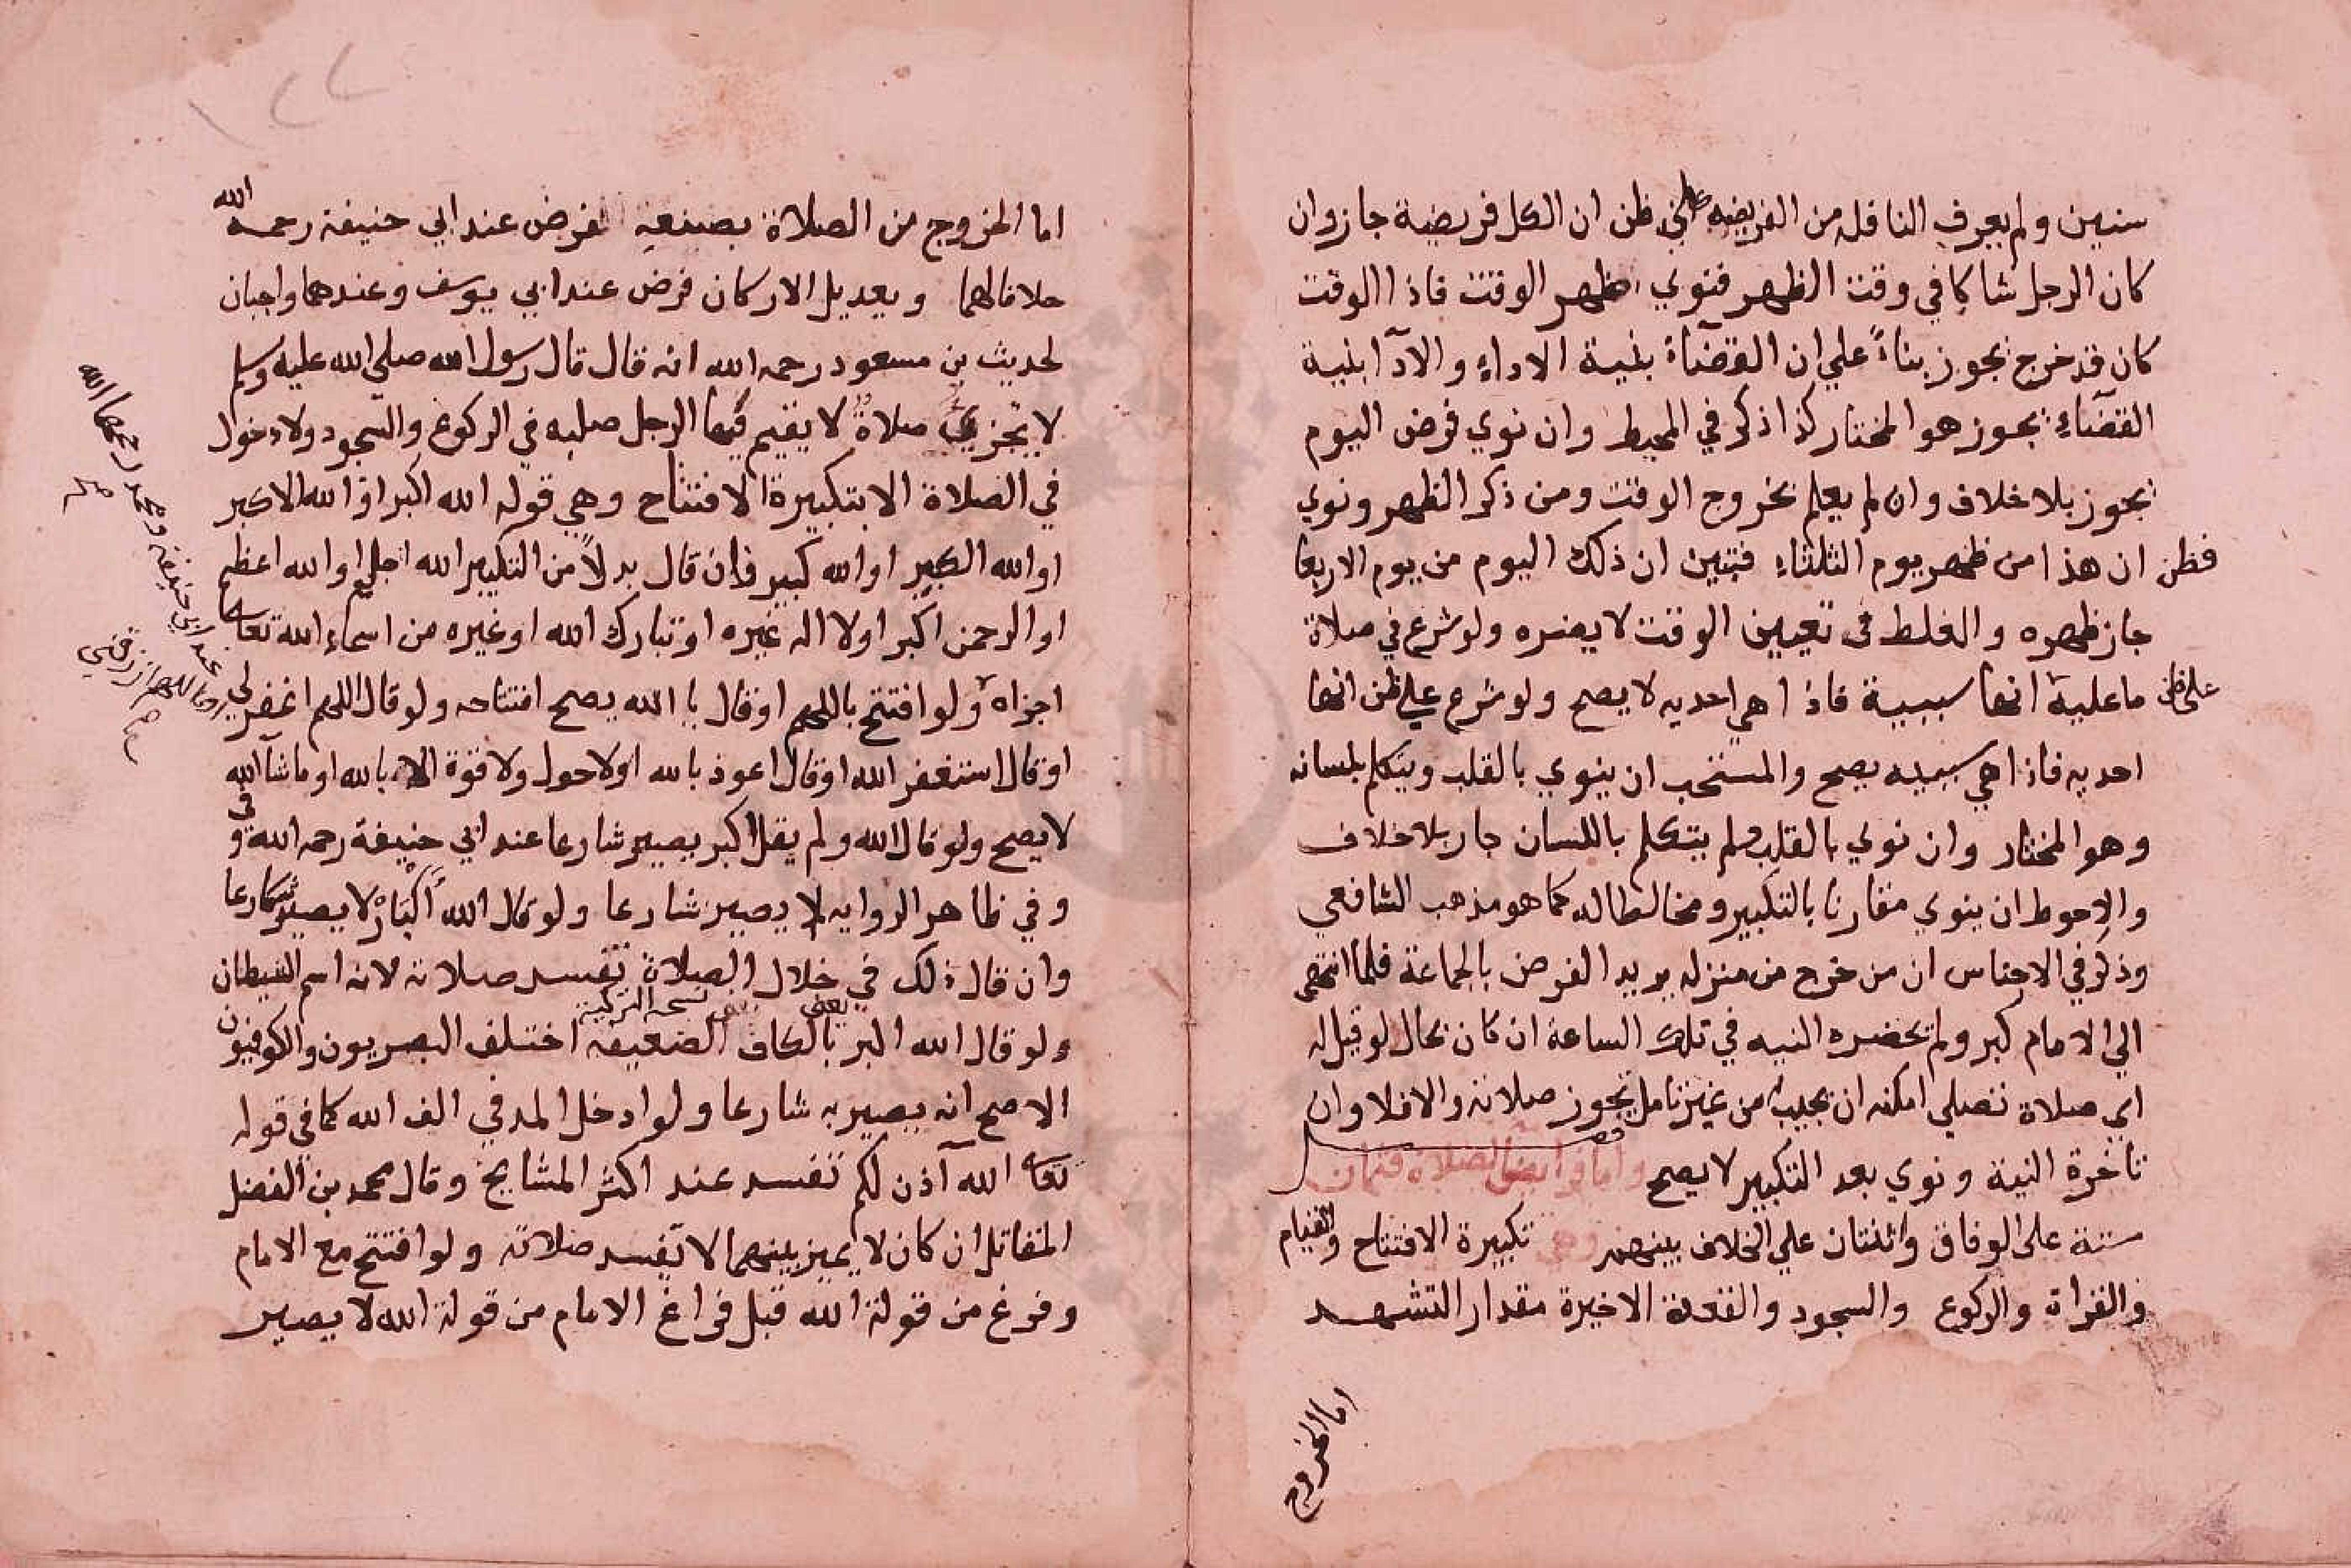 سنين ولم يعرف النافلة من الفريضة ظن ان الكل فريضة جاز وان
كان الرجل شاكا في وقت الظهر فنوي ظهر الوقت فاذا الوقت
كان قد خرج يجوز بناءً علي ان القضاء بنية الاداء والادآ بنية
القضاء يجوز هو المختار كذا ذكر في المحيط وان نوي فرض اليوم
يجوز بلا خلاف وان لم يعلم بخروج الوقت ومن ذكر الظهر ونوي
فظن ان هذا من ظهر يوم الثلثاء فتبين ان ذلك اليوم من يوم الاربعا
جاز ظهره والغلط في تعيين الوقت لا يضره ولو شرع في صلاة
علي ظن ما عليه انها سبية فاذا هي احديه لا يصح ولو شرع علي ظن انها
احديه فاذا هي سبيه يصح والمستحب ان ينوي بالقلب ويتكلم بلسانه
وهو المختار وان نوي بالقلب ولم يتكلم باللسان جاز بلا خلاف
والاحوط ان ينوي مقارنا بالتكبير ومخالطا له كما هو مذهب الشافعي
وذكر في الاجناس ان من خرج من منزله يريد الفرض بالجماعة فلما انتهي
الي الامام كبر ولم تحضره النيه في تلك الساعة ان كان بحال لو قيل له
اي صلاة تصلي امكنه ان يجيب من غير تامل تجوز صلاته والا فلا وان
تاخرة النية ونوي بعد التكبير لا يصح واما فرايض الصلاة فثمان
ستة علي الوفاق واثنتان علي الخلاف بينهم وهي تكبيرة الافتتاح والقيام
والقراة والركوع والسجود والقعدة الاخيرة مقدار التشهد
اما الخروج
اما الخروج من الصلاة بصنعه فرض عند ابي حنيفة رحمه الله
خلافا لهما وتعديل الاركان فرض عند ابي يوسف وعندهما واجبان
لحديث بن مسعود رحمه الله انه قال قال رسول الله صلي الله عليه وسلم
لا تجزي صلاة لا يقيم فيها الرجل صلبه في الركوع والسجود ولا دخول
في الصلاة الا بتكبيرة الافتتاح وهي قوله الله اكبر او الله الاكبر
او الله الكبير او الله كبير فان قال بدلاً من التكبير الله اجل او الله اعظم
او الرحمن اكبر او لا اله غيره او تبارك الله او غيره من اسماء الله تعالي
اجزاه ولو افتتح باللهم او قال يا الله يصح افتتاحه ولو قال اللهم اغفر لي
او قال استغفر الله او قال اعوذ بالله او لا حول ولا قوة الا بالله او ما شآ الله
لا يصح ولو قال الله ولم يقل اكبر يصير شارعا عند ابي حنيفة رحمه الله
وفي ظاهر الروايه لا يصير شارعا ولو قال الله أَكْبَارْ لا يصير شارعا
وان قال ذلك في خلال الصلاة تفسد صلاته لانه اسم الشيطان
ولو قال الله اكبر بالكاف الضعيفة اختلف البصريون والكوفيون
الاصح انه يصير به شارعا ولو ادخل المد في الف الله كما في قوله
تعا الله آذن لكم تفسد عند اكثر المشايخ وقال محمد بن الفضل
المقاتل ان كان لا يميز بينهما لا تفسد صلاته ولو افتتح مع الامام
وفرغ من قولة الله قبل فراغ الامام من قولة الله لا يصير
عند ابي حنيفة ومحمد رحمهما الله
صح
اللهم ارزقني